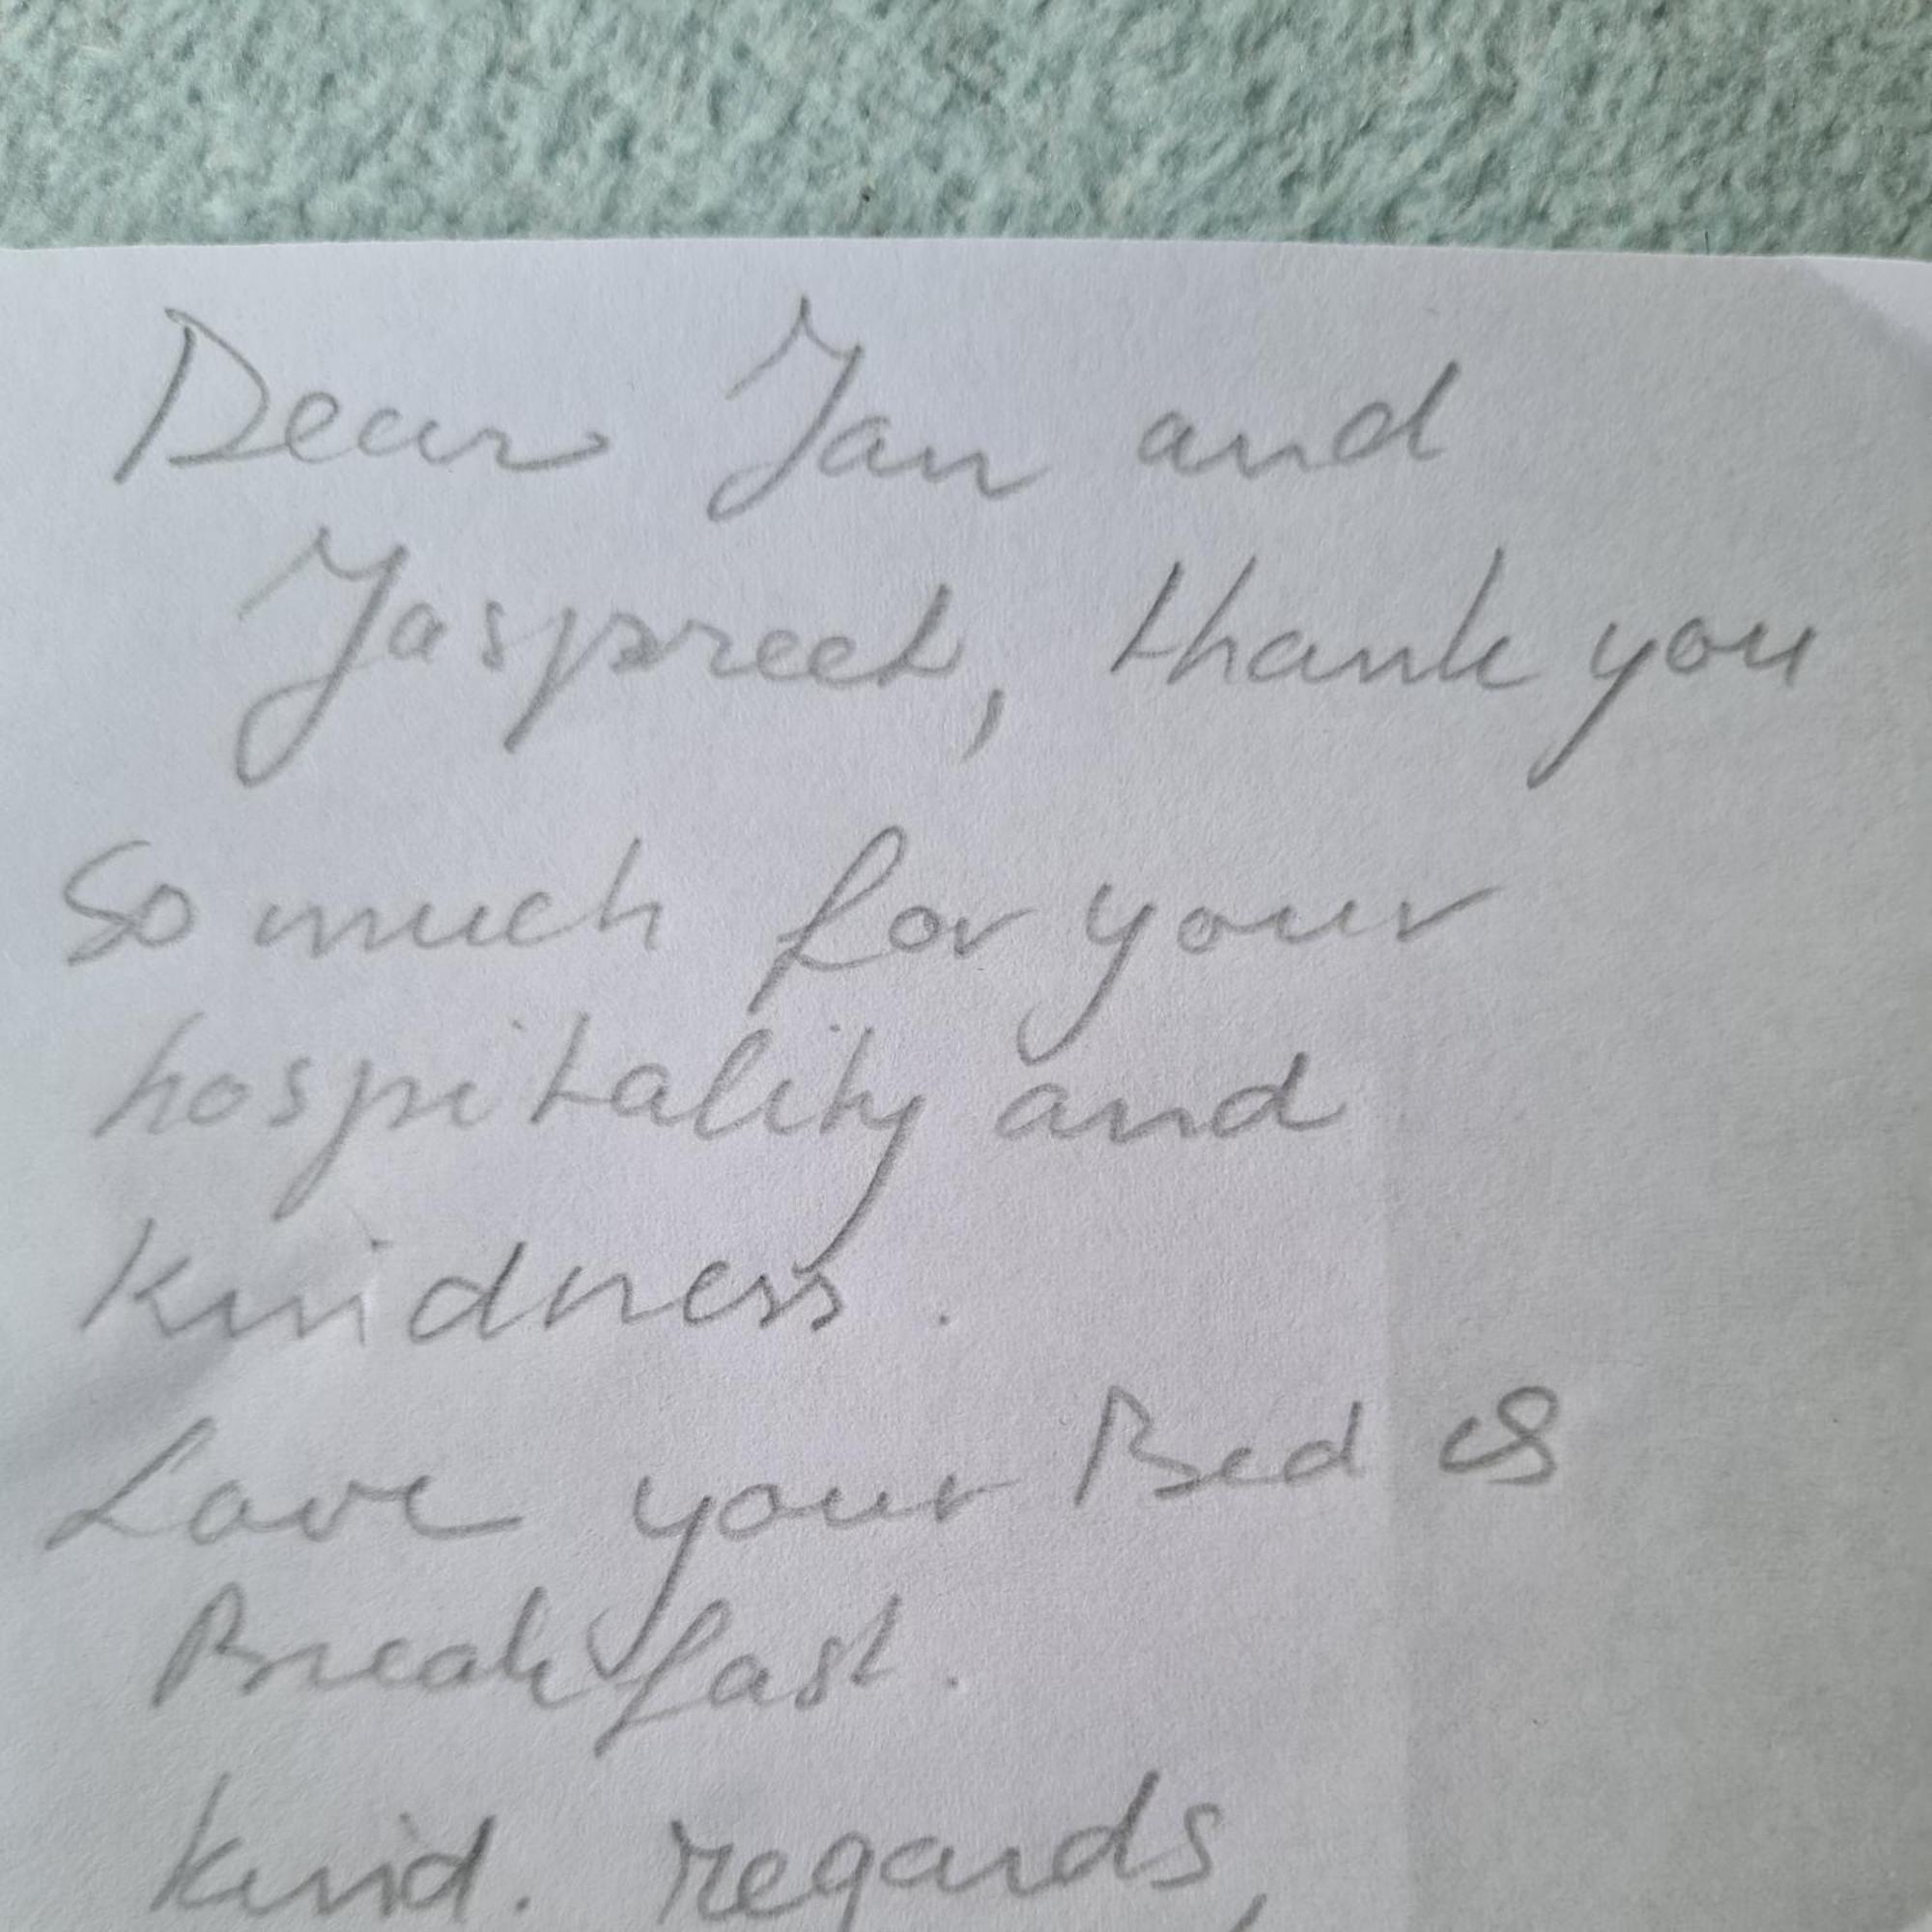 Dear Jan and
Jaspreet, thank you
So much for your
hospitality and
Kindness.
Love your Bed &
Breakfast.
Kind. regards,